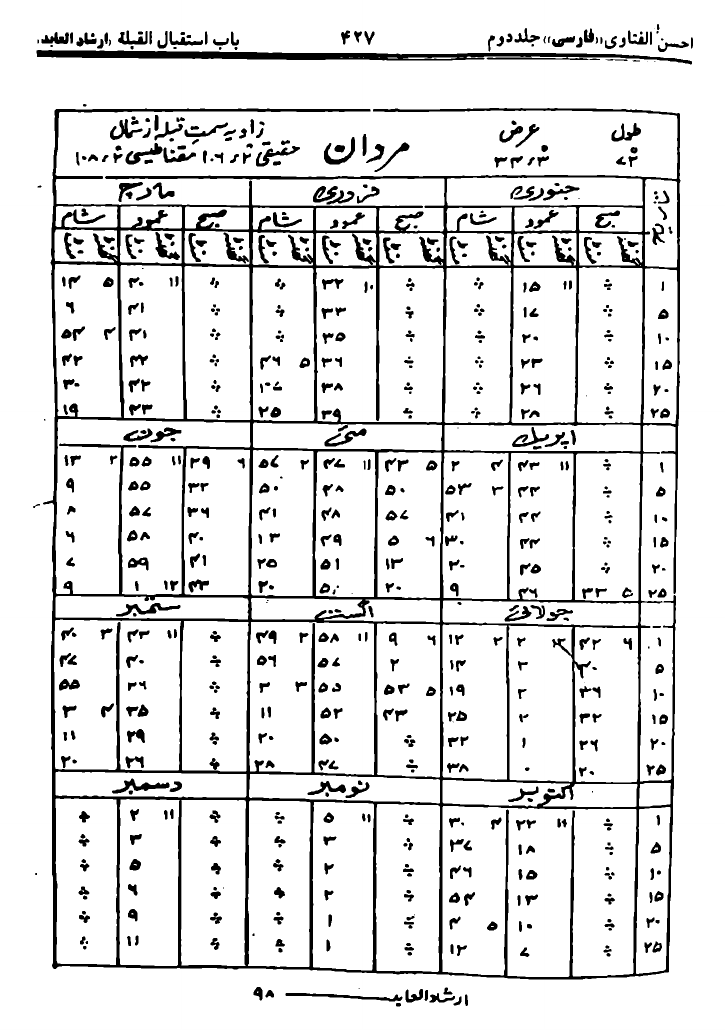 احسن الفتاوی «فارسی» جلد دوم ۴۲۷ باب استقبال القبلة (ارشاد العابد)
طول ۷۲° عرض ۳۴٫۳° مردان زاویه سمت قبله از شمال
حقیقی ۱۰۶٫۲° مقناطیسی ۱۰۸٫۲°
تاریخ جنوری فروری مارچ
صبح عمود شام صبح عمود شام صبح عمود شام
گھنٹہ منٹ گھنٹہ منٹ گھنٹہ منٹ گھنٹہ منٹ گھنٹہ منٹ گھنٹہ منٹ گھنٹہ منٹ گھنٹہ منٹ گھنٹہ منٹ
۱ ÷ ۱۱ ۱۵ ÷ ÷ ۱۰ ۳۲ ÷ ÷ ۱۱ ۴۰ ۵ ۱۴
۵ ÷ ۱۷ ÷ ÷ ۳۳ ÷ ÷ ۴۱ ۶
۱۰ ÷ ۲۰ ÷ ÷ ۳۵ ÷ ÷ ۴۱ ۴ ۵۴
۱۵ ÷ ۲۳ ÷ ÷ ۳۶ ۵ ۴۶ ÷ ۴۲ ۴۲
۲۰ ÷ ۲۶ ÷ ÷ ۳۸ ÷ ۴۲ ۳۰
۲۵ ÷ ۲۸ ÷ ÷ ۳۹ ۲۵ ÷ ۴۳ ۱۹
اپریل مئی جون
۱ ÷ ۱۱ ۴۳ ۴ ۲ ۵ ۴۳ ۱۱ ۴۷ ۲ ۵۷ ۶ ۲۹ ۱۱ ۵۵ ۲ ۱۳
۵ ÷ ۴۴ ۳ ۵۳ ۵۰ ۴۸ ۵۰ ۳۲ ۵۵ ۹
۱۰ ÷ ۴۴ ۴۱ ۵۷ ۴۸ ۴۱ ۳۶ ۵۷ ۸
۱۵ ÷ ۴۴ ۳۰ ۶ ۵ ۴۹ ۱۳ ۴۰ ۵۸ ۶
۲۰ ÷ ۴۵ ۲۰ ۱۳ ۵۱ ۲۵ ۴۱ ۵۹ ۷
۲۵ ۵ ۳۳ ۴۶ ۹ ۲۰ ۵۰ ۲۰ ۴۳ ۱۲ ۱ ۹
جولائی اگست ستمبر
۱ ۶ ۴۲ ۱۲ ۲ ۲ ۱۲ ۶ ۹ ۱۱ ۵۸ ۲ ۴۹ ÷ ۱۱ ۴۳ ۳ ۴۰
۵ ۴۰ ۲ ۱۴ ۲ ۵۷ ۵۶ ÷ ۴۰ ۴۷
۱۰ ۳۶ ۲ ۱۹ ۵ ۵۳ ۵۵ ۳ ۳ ÷ ۳۶ ۵۵
۱۵ ۳۲ ۲ ۲۵ ۴۳ ۵۲ ۱۱ ÷ ۳۵ ۴ ۳
۲۰ ۲۶ ۱ ۳۲ ÷ ۵۰ ۲۰ ÷ ۲۹ ۱۱
۲۵ ۲۰ ۰ ۳۸ ÷ ۴۷ ۲۸ ÷ ۲۶ ۲۰
اکتوبر نومبر دسمبر
۱ ÷ ۱۱ ۲۲ ۴ ۳۰ ÷ ۱۱ ۵ ÷ ÷ ۱۱ ۲ ÷
۵ ÷ ۱۸ ۳۷ ÷ ۳ ÷ ÷ ۳ ÷
۱۰ ÷ ۱۵ ۴۶ ÷ ۲ ÷ ÷ ۵ ÷
۱۵ ÷ ۱۳ ۵۴ ÷ ۲ ÷ ÷ ۶ ÷
۲۰ ÷ ۱۰ ۵ ۴ ÷ ۱ ÷ ÷ ۹ ÷
۲۵ ÷ ۷ ۱۲ ÷ ۱ ÷ ÷ ۱۱ ÷
ارشاد العابد ــــــ ۹۸